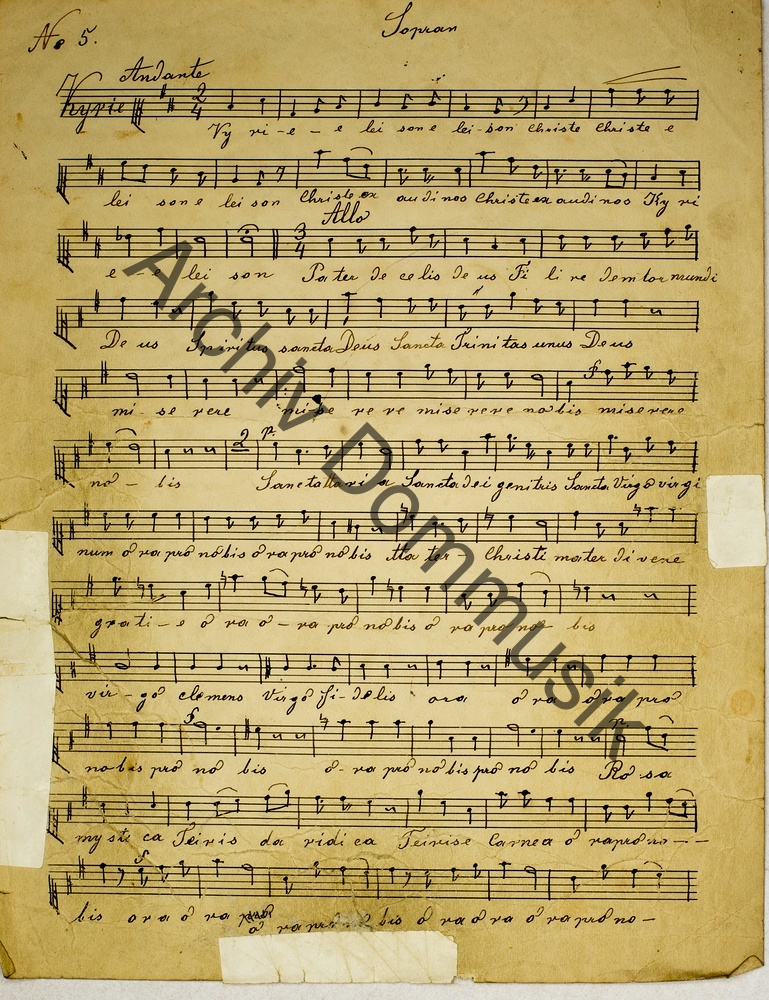 No 5.
Sopran
Andante
Kyrie
2
4
Ky ri-e-e lei son e lei-son Christe Christe e
lei son e lei son Christe ex au di nos Christe ex audi nos Ky ri
Allo
3
4
e-e lei son Pater de celis de us Fi li re demtor mundi
De us Spiritus sancta Deus Sancta Trinitas unus Deus
f
mi-se rere mi-se re re mise rere nobis miserere
2
p.
no-bis Sancta Maria Sancta dei genitris Sancta Virgo virgi
num o ra pro nobis o ra pro nobis Ma ter Christi mater di vene
grati-e o ra o-ra pro nobis o ra pro no bis
vir-go clemens Virgo fi-delis ora o ra o ra pro
f
p.
nobis pro no bis o-ra pro nobis pro no bis Ro sa
my sti ca Teiris da vidi ca Teirise Carnea o ra pro no--
f
bis ora o ra pro
o ra pro no bis o ra o ra o ra pro no-
Archiv Dommusik